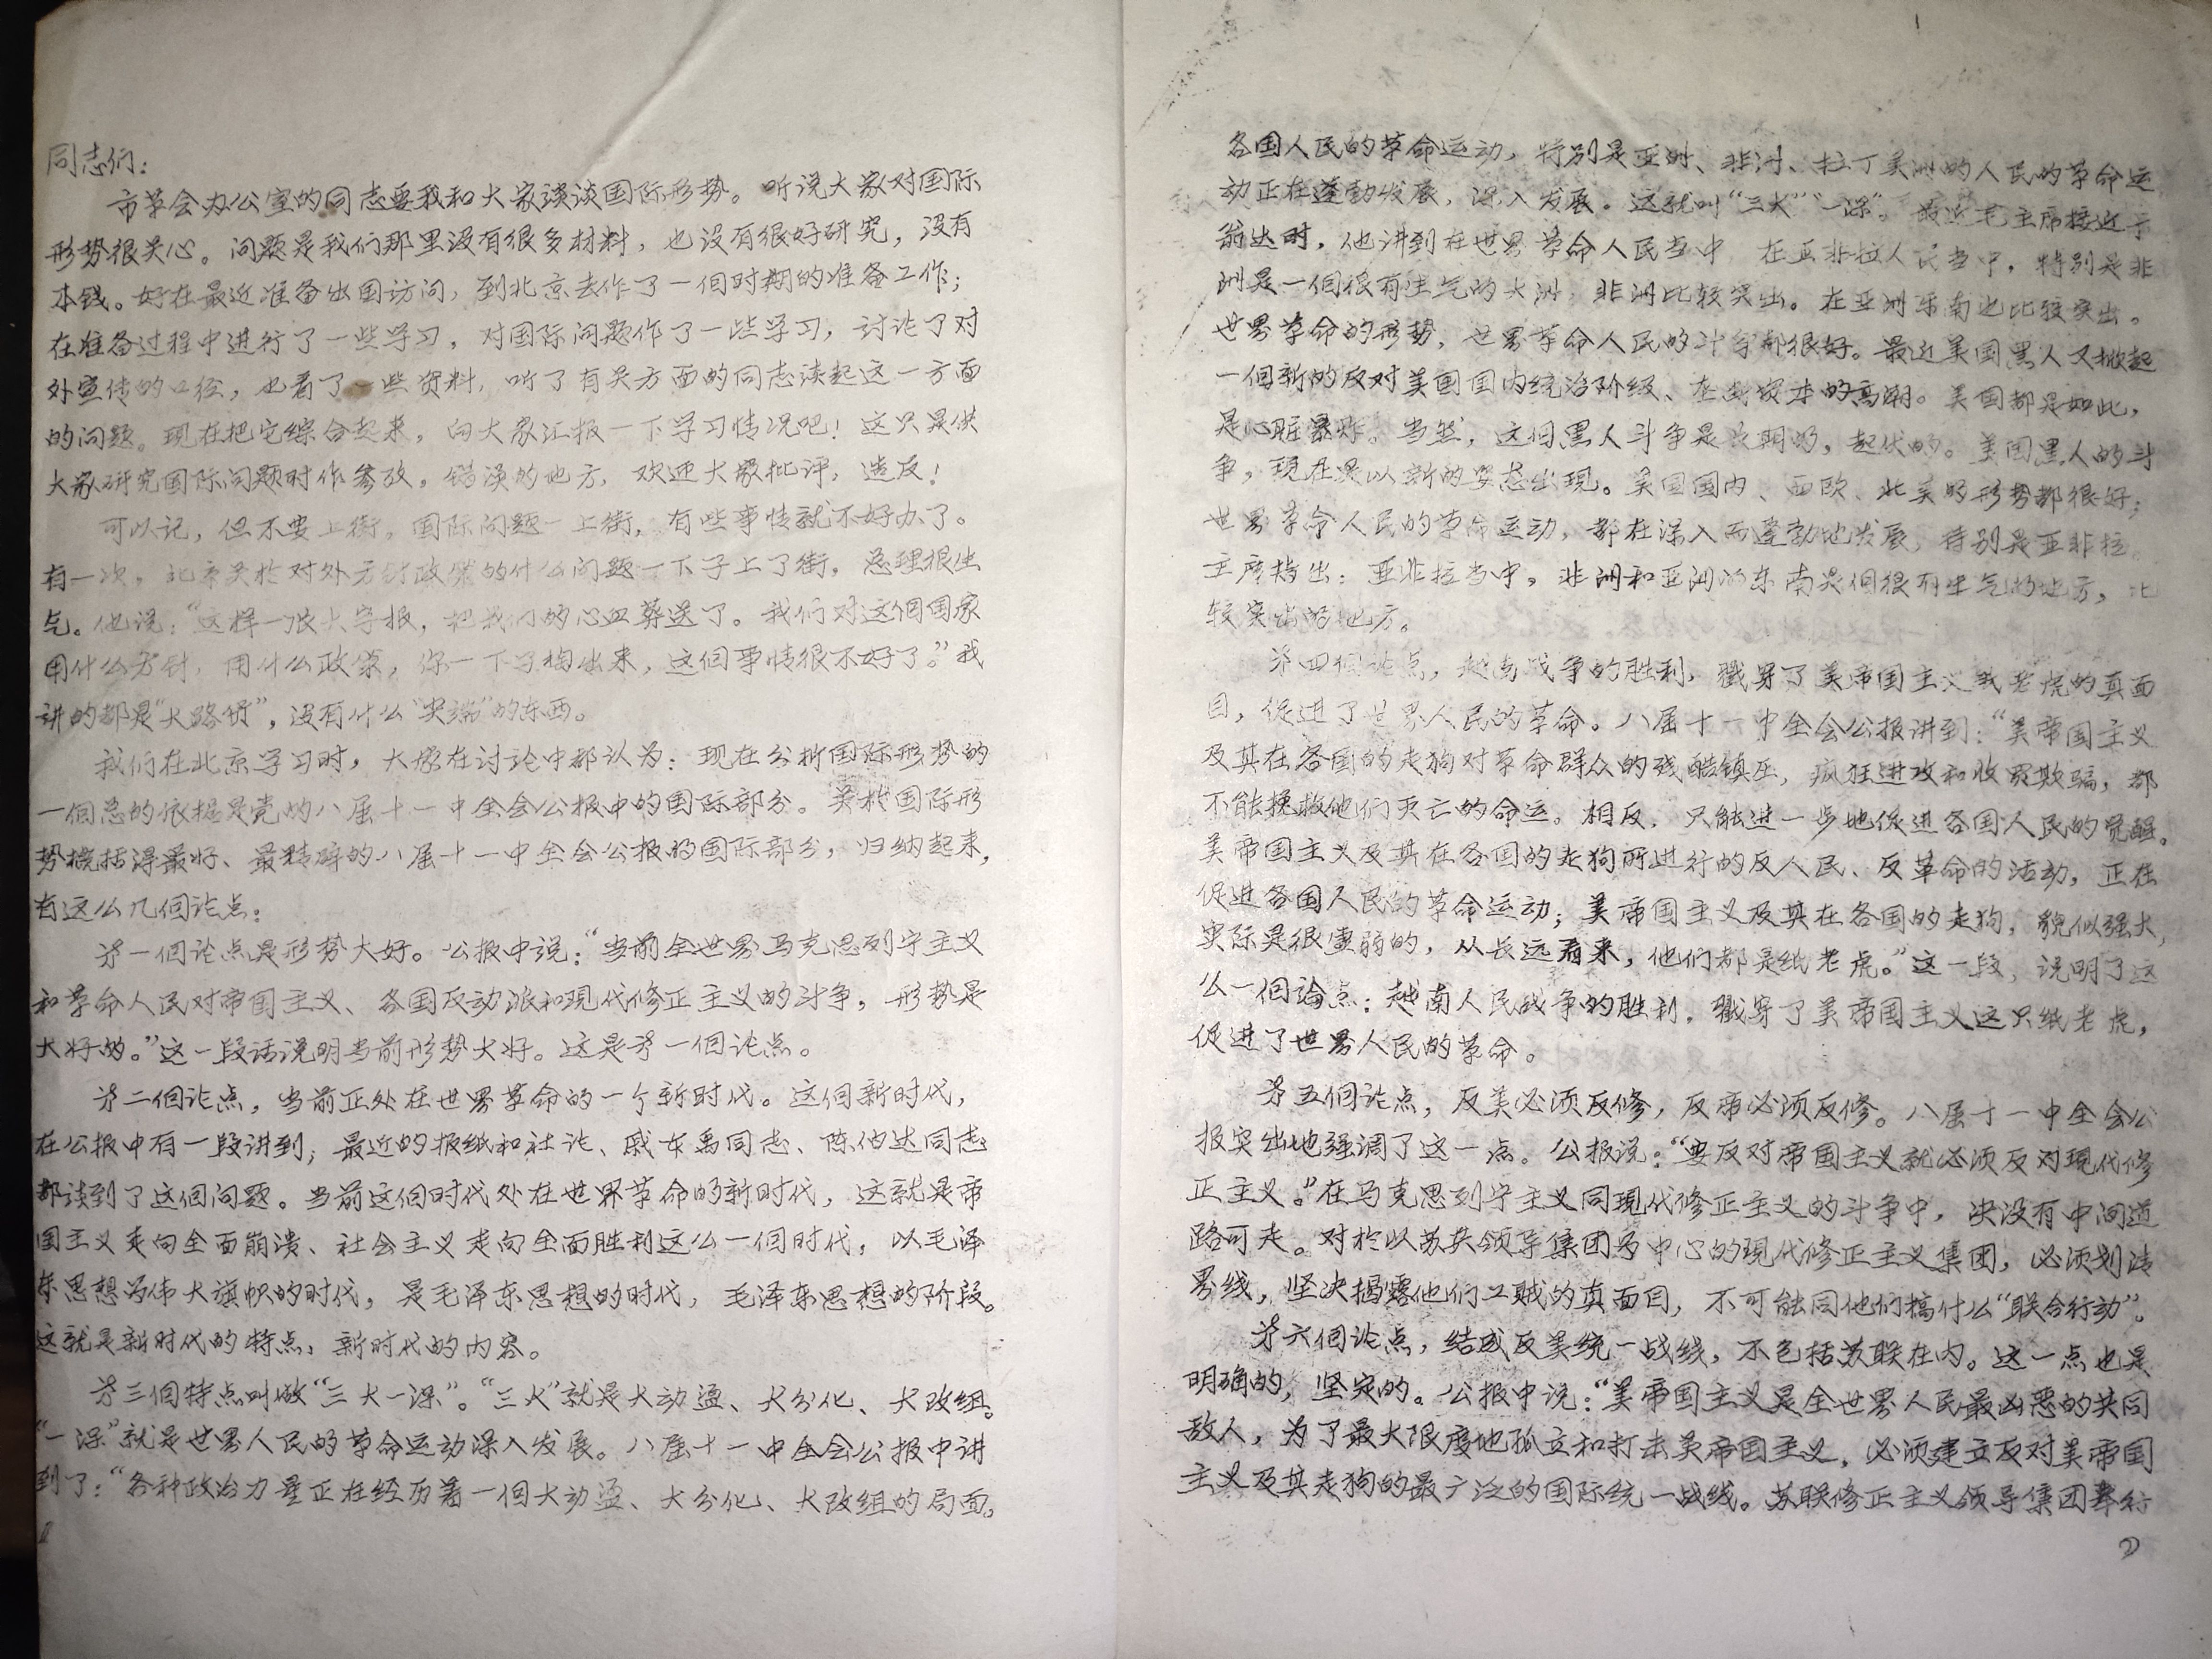 同志们：
市革会办公室的同志要我和大家谈谈国际形势。听说大家对国际
形势很关心。问题是我们那里没有很多材料，也没有很好研究，没有
本钱。好在最近准备出国访问，到北京去作了一個时期的准备工作；
在准备过程中进行了一些学习，对国际问题作了一些学习，讨论了对
外宣传的口径，也看了一些资料，听了有关方面的同志谈起这一方面
的问题。现在把它综合起来，向大家汇报一下学习情况吧！这只是供
大家研究国际问题时作参孜，错误的地方，欢迎大家批评，造反！
可以记，但不要上街，国际问题一上街，有些事情就不好办了。
有一次，北京关於对外方针政策的什么问题一下子上了街，总理很生
气。他说：“这样一张大字报，把我们的心血葬送了。我们对这個国家
用什么方针，用什么政策，你一下子捅出来，这個事情很不好了。”我
讲的都是“大路货”，没有什么“尖端”的东西。
我们在北京学习时，大家在讨论中都认为：现在分析国际形势的
一個总的依据是党的八届十一中全会公报中的国际部分。关於国际形
势概括得最好、最精辟的八届十一中全会公报的国际部分，归纳起来，
有这么几個论点：
第一個论点是形势大好。公报中说：“当前全世界马克思列宁主义
和革命人民对帝国主义、各国反动派和現代修正主义的斗争，形势是
大好的。”这一段话说明当前形势大好。这是第一個论点。
第二個论点，当前正处在世界革命的一个新时代。这個新时代，
在公报中有一段讲到；最近的报纸和社论、戚本禹同志、陈伯达同志
都谈到了这個问题。当前这個时代处在世界革命的新时代，这就是帝
国主义走向全面崩溃、社会主义走向全面胜利这么一個时代，以毛泽
东思想为伟大旗帜的时代，是毛泽东思想的时代，毛泽东思想的阶段。
这就是新时代的特点，新时代的内容。
第三個特点叫做“三大一深”。“三大”就是大动盪、大分化、大改组。
“一深”就是世界人民的革命运动深入发展。八届十一中全会公报中讲
到了：“各种政治力量正在经历着一個大动盪、大分化、大改组的局面。
各国人民的革命运动，特别是亚洲、非洲、拉丁美洲的人民的革命运
动正在蓬勃发展，深入发展。这就叫“三大”“一深”。最近毛主席接近于
前达时，他讲到在世界革命人民当中，在亚非拉人民当中，特别是非
洲是一個很有生气的大洲，非洲比较突出。在亚洲东南也比较突出。
世界革命的形势，世界革命人民的斗争都很好。最近美国黑人又掀起
一個新的反对美国国内统治阶级、垄断资本的高潮。美国都是如此，
是心脏暴炸。当然，这個黑人斗争是长期的，起伏的。美国黑人的斗
争，現在是以新的姿态出現。美国国内、西欧、北美的形势都很好；
世界革命人民的革命运动，都在深入而蓬勃地发展，特别是亚非拉。
主席指出：亚非拉当中，非洲和亚洲的东南是個很有生气的地方，比
较突出的地方。
第四個论点，越南战争的胜利，戳穿了美帝国主义纸老虎的真面
目，促进了世界人民的革命。八届十一中全会公报讲到：“美帝国主义
及其在各国的走狗对革命群众的残酷镇压，疯狂进攻和收买欺骗，都
不能挽救他们灭亡的命运。相反，只能进一步地促进各国人民的觉醒。
美帝国主义及其在各国的走狗所进行的反人民、反革命的活动，正在
促进各国人民的革命运动；美帝国主义及其在各国的走狗，貌似强大，
实际是很虚弱的，从长远看来，他们都是纸老虎。”这一段，说明了这
么一個論点：越南人民战争的胜利，戳穿了美帝国主义这只纸老虎，
促进了世界人民的革命。
第五個论点，反美必须反修，反帝必须反修。八届十一中全会公
报突出地强调了这一点。公报说：“要反对帝国主义就必须反对現代修
正主义。”在马克思列宁主义同現代修正主义的斗争中，决没有中间道
路可走。对於以苏共领导集团为中心的現代修正主义集团，必须划清
界线，坚决揭露他们工贼的真面目，不可能同他们搞什么“联合行动”。
第六個论点，结成反美统一战线，不包括苏联在内。这一点也是
明确的，坚定的。公报中说：“美帝国主义是全世界人民最凶恶的共同
敌人，为了最大限度地孤立和打击美帝国主义，必须建立反对美帝国
主义及其走狗的最广泛的国际统一战线。苏联修正主义领导集团奉行
2